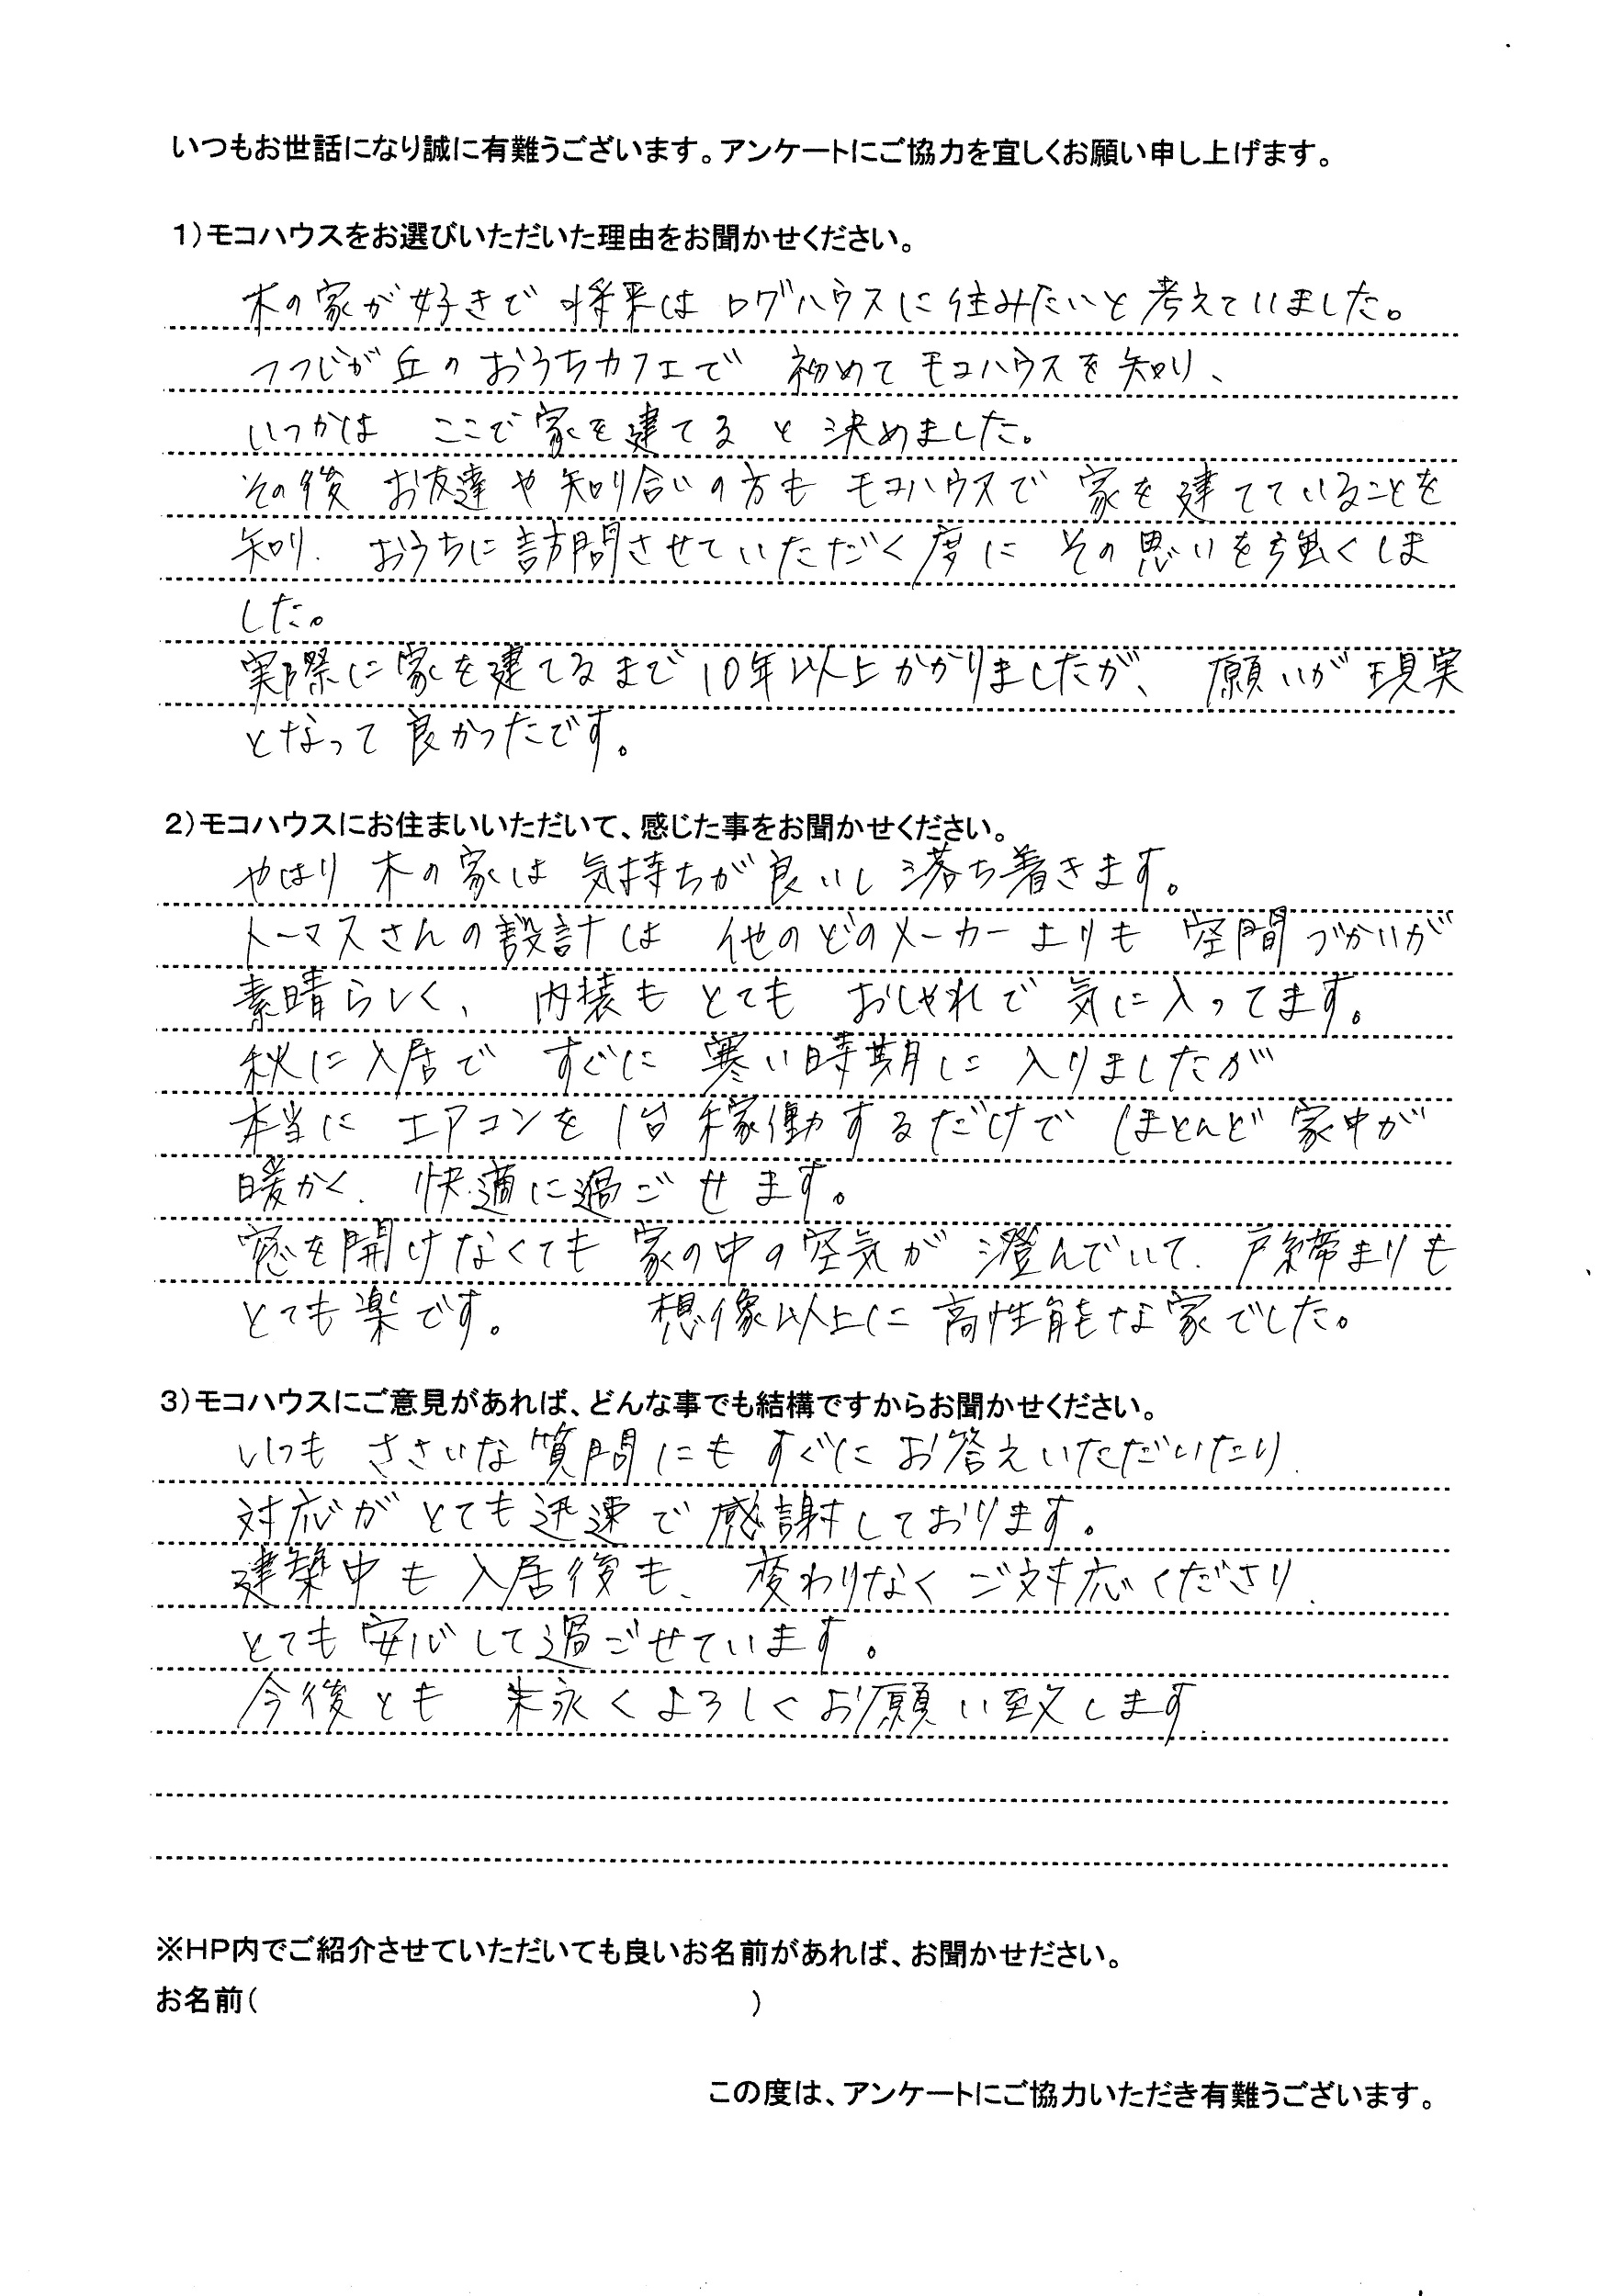 いつもお世話になり誠に有難うございます。アンケートにご協力を宜しくお願い申し上げます。
1)モコハウスをお選びいただいた理由をお聞かせください。
木の家が好きで将来はログハウスに住みたいと考えていました。
つつじが丘のおうちカフェで 初めてモコハウスを知り、
いつかは ここで家を建てると決めました。
その後 お友達や知り合いの方も モコハウスで 家を建てていることを
知り、おうちに訪問させていただく度に その思いを強くしま
した。
実際に家を建てるまで10年以上かかりましたが、願いが現実
となって良かったです。
2)モコハウスにお住まいいただいて、感じた事をお聞かせください。
やはり 木の家は 気持ちが良いし 落ち着きます。
トーマスさんの設計は 他のどのメーカーよりも 空間づかいが
素晴らしく、内装も とても おしゃれで 気に入ってます。
秋に入居で すぐに 寒い時期に 入りましたが
本当に エアコンを 1台 稼働するだけで ほとんど 家中が
暖かく、快適に過ごせます。
窓を開けなくても 家の中の空気が 澄んでいて、戸締まりも
とても楽です。 想像以上に高性能な家でした。
3)モコハウスにご意見があれば、どんな事でも結構ですからお聞かせください。
いつも ささいな質問にも すぐに お答えいただいたり、
対応が とても迅速で 感謝しております。
建築中も 入居後も、変わりなく ご対応くださり、
とても 安心して過ごせています。
今後とも 末永くよろしくお願い致します。
※HP内でご紹介させていただいても良いお名前があれば、お聞かせださい。
お名前( )
この度は、アンケートにご協力いただき有難うございます。